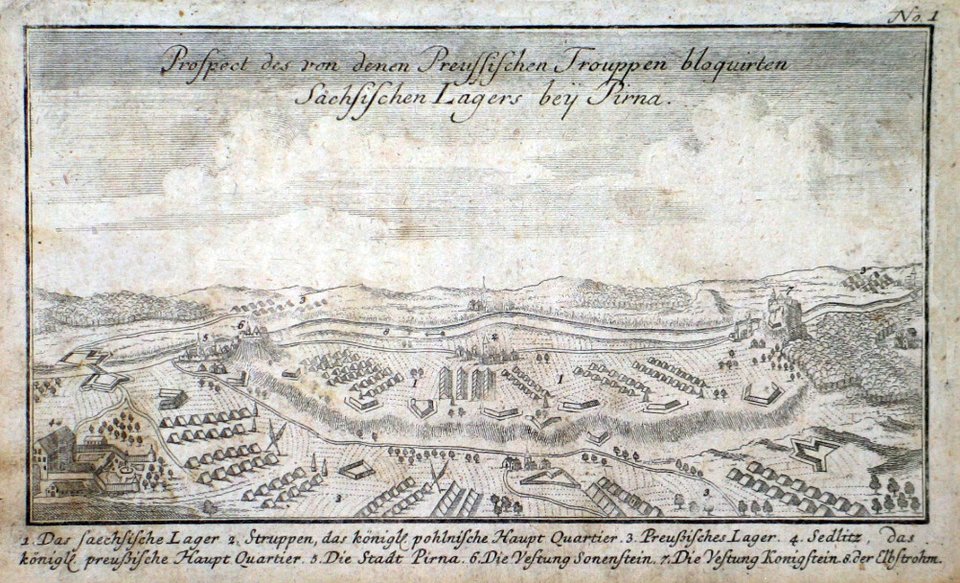 No. 1
Prospect des von denen Preussischen Trouppen bloquirten
Sächsischen Lagers beÿ Pirna.
3
3
7
6
5
8
2
1
1
4
3
3
1. Das saechsische Lager 2. Struppen, das königl. pohlnische Haupt Quartier. 3. Preußisches Lager. 4. Sedlitz, das
königl. preußische Haupt Quartier. 5. Die Stadt Pirna. 6. Die Vestung Sonenstein. 7. Die Vestung Konigstein. 8. der Elbstrohm.